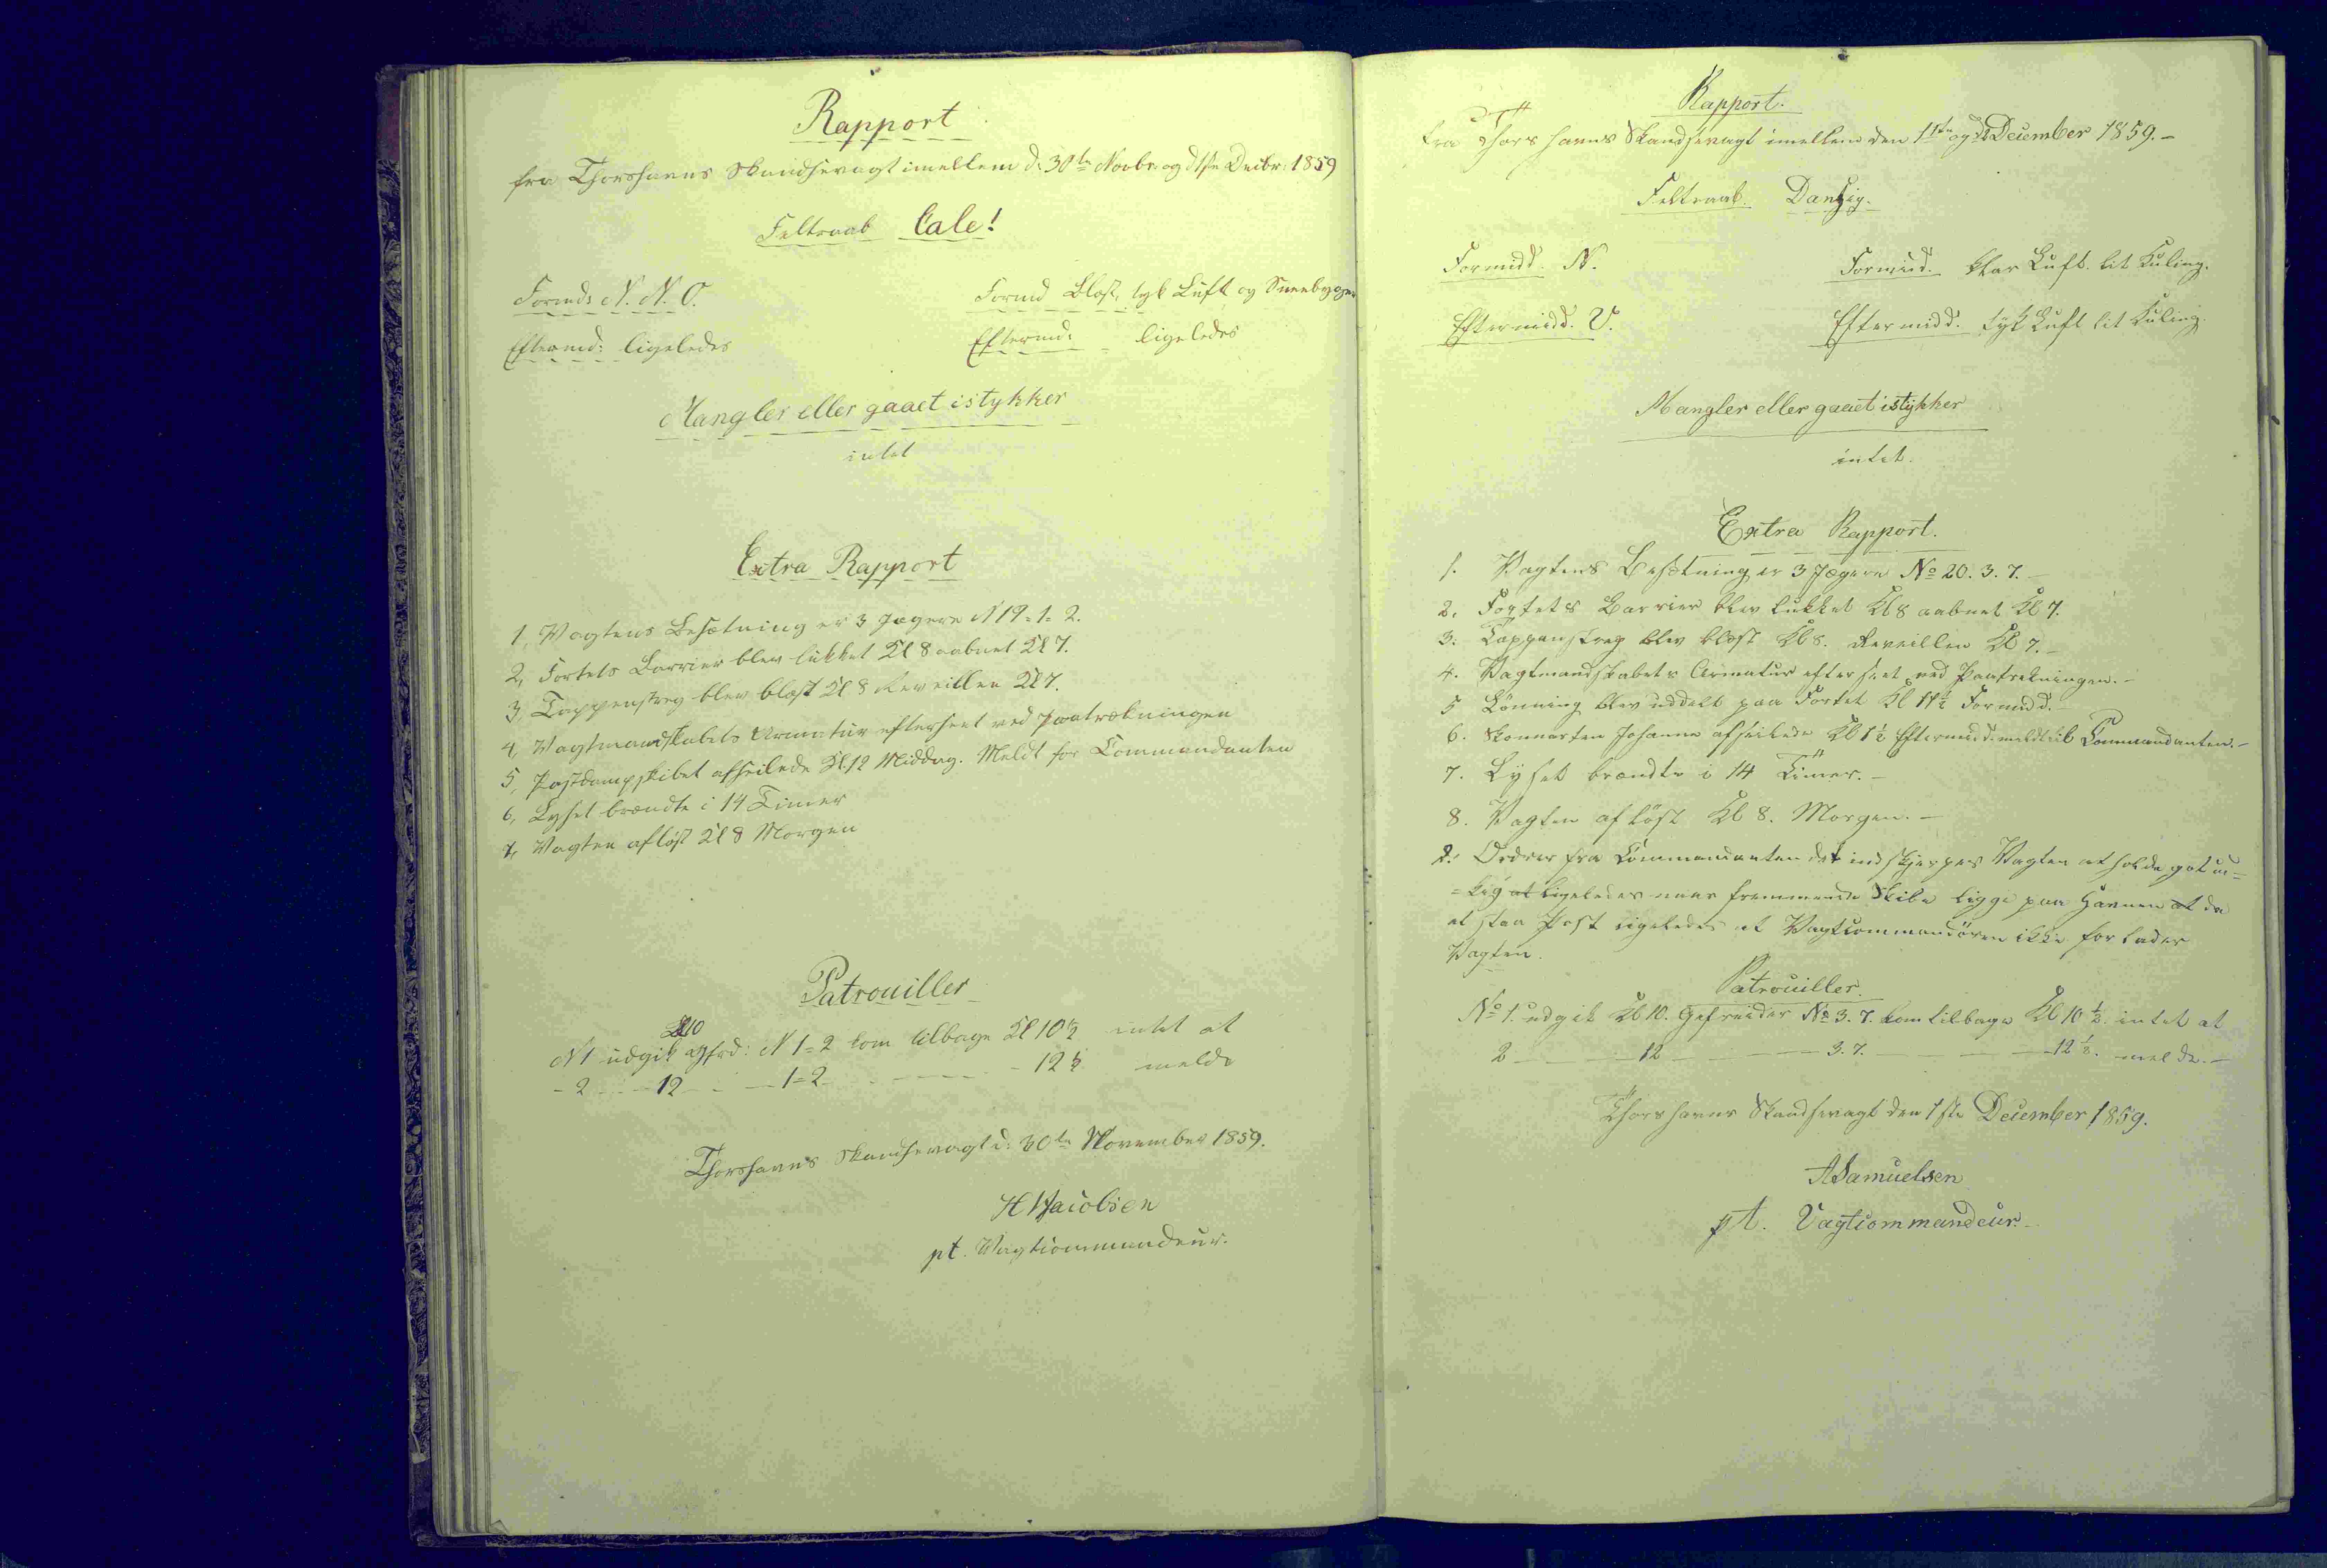 Rapport
fra Thorshavns Skandsevagt imellem d. 30te Novbr. og d 1ste Decbr: 1859
Feltraab Cale!
Formd: N. N. O.
Formd Blæst, tyk Luft og Sneebyger
Eftermd: ligeledes
Eftermd: ligeledes
Mangler eller gaaet istykker
intet
Extra Rapport
1, Vagtens Besætning er 3 Jægere N 19 = 1 = 2.
2, Fortets Barrier blev lukket Kl 8 aabnet Kl 7.
3, Tappenstreg blev blæst Kl 8 Reveillen Kl 7.
4, Vagtmandskabets Armatur efterseet ved Paatrækningen
5, Postdampskibet afseilede Kl. 12 Middag. Meldt for Commandanten
6, Lyset brændte i 14 Timer
7, Vagten afløst Kl 8 Morgen
Patrouiller
Kl 10
N 1 udgik Gefrd: N 1=2 kom tilbage Kl 10½ intet at
- 2 - - 12 - - - 1=2 - - - - 12½ melde
Thorshavns Skandsevagt d: 30te November 1859.
H Jacobsen
pt. Vagtcommandeur.
Rapport.
fra Thorshavns Skandsevagt imellem den 1ste og 2 December 1859. -
Feltraab. Danzig.
Formidd. N.
Formidd. klar Luft. lit Kuling.
Eftermidd. V.
Eftermidd. tyk Luft lit Kuling.
Mangler eller gaaet istykker
intet.
Extra Rapport.
1. Vagtens Besætning er 3 Jægere No 20. 3. 7. -
2. Fortets Barrier blev lukket Kl 8 aabnet Kl 7.
3. Tappenstreg blev blæst Kl 8. Reveillen Kl 7. -
4. Vagtmandskabets Armatur efterseet ved Paatrekningen. -
5 Lønning blev uddelt paa Fortet Kl 11½ Formidd.
6. Skonnerten Johanne afseilede Kl 1½ Eftermidd. meldt til Commandanten. -
7. Lyset brændte i 14 Timer. -
8. Vagten afløst Kl 8. Morgen. -
9. Ordrer fra Commandanten det indskjerpes Vagten at holde got ud=
=kig at ligeledes naar fremmende Skibe ligge paa Havnen at da
at staa Post ligeledes at Vagtcommandøren ikke forlader
Vagten.
Patrouiller.
No 1. udgik Kl 10. Gefreider No 3. 7. kom tilbage Kl 10½. intet at
2 - - 12 - - 3. 7. - - 12½. melde. -
Thorshavns Skandsevagt den 1ste December 1859.
A Samuelsen
pt. Vagtcommandeur. -